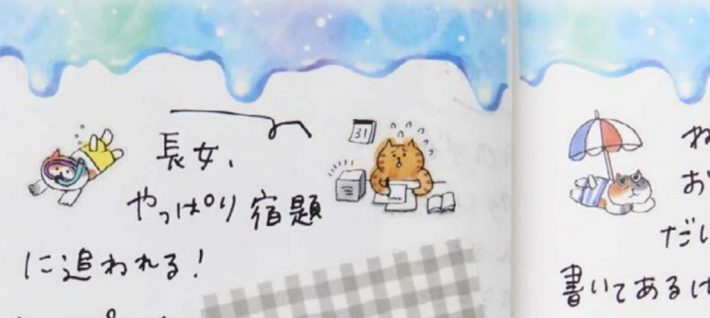 31
長女、
やっぱり宿題
に追われる!
ね
お
だい
書いてあるけ